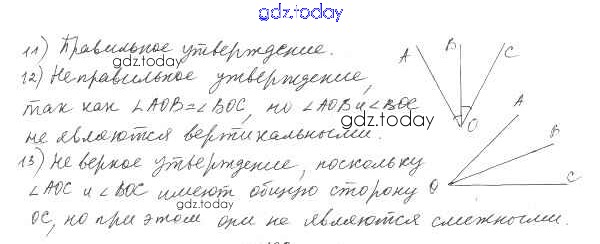 gdz.today
11) Правильное утверждение.
gdz.today
12) Неправильное утверждение,
так как ∠AOB=∠BOC, но ∠AOB и ∠BOC
gdz.today
не являются вертикальными.
13) Неверное утверждение, поскольку
gdz.today
∠AOC и ∠BOC имеют общую сторону
OC, но при этом они не являются смежными.
A B C
O
A
B
O C